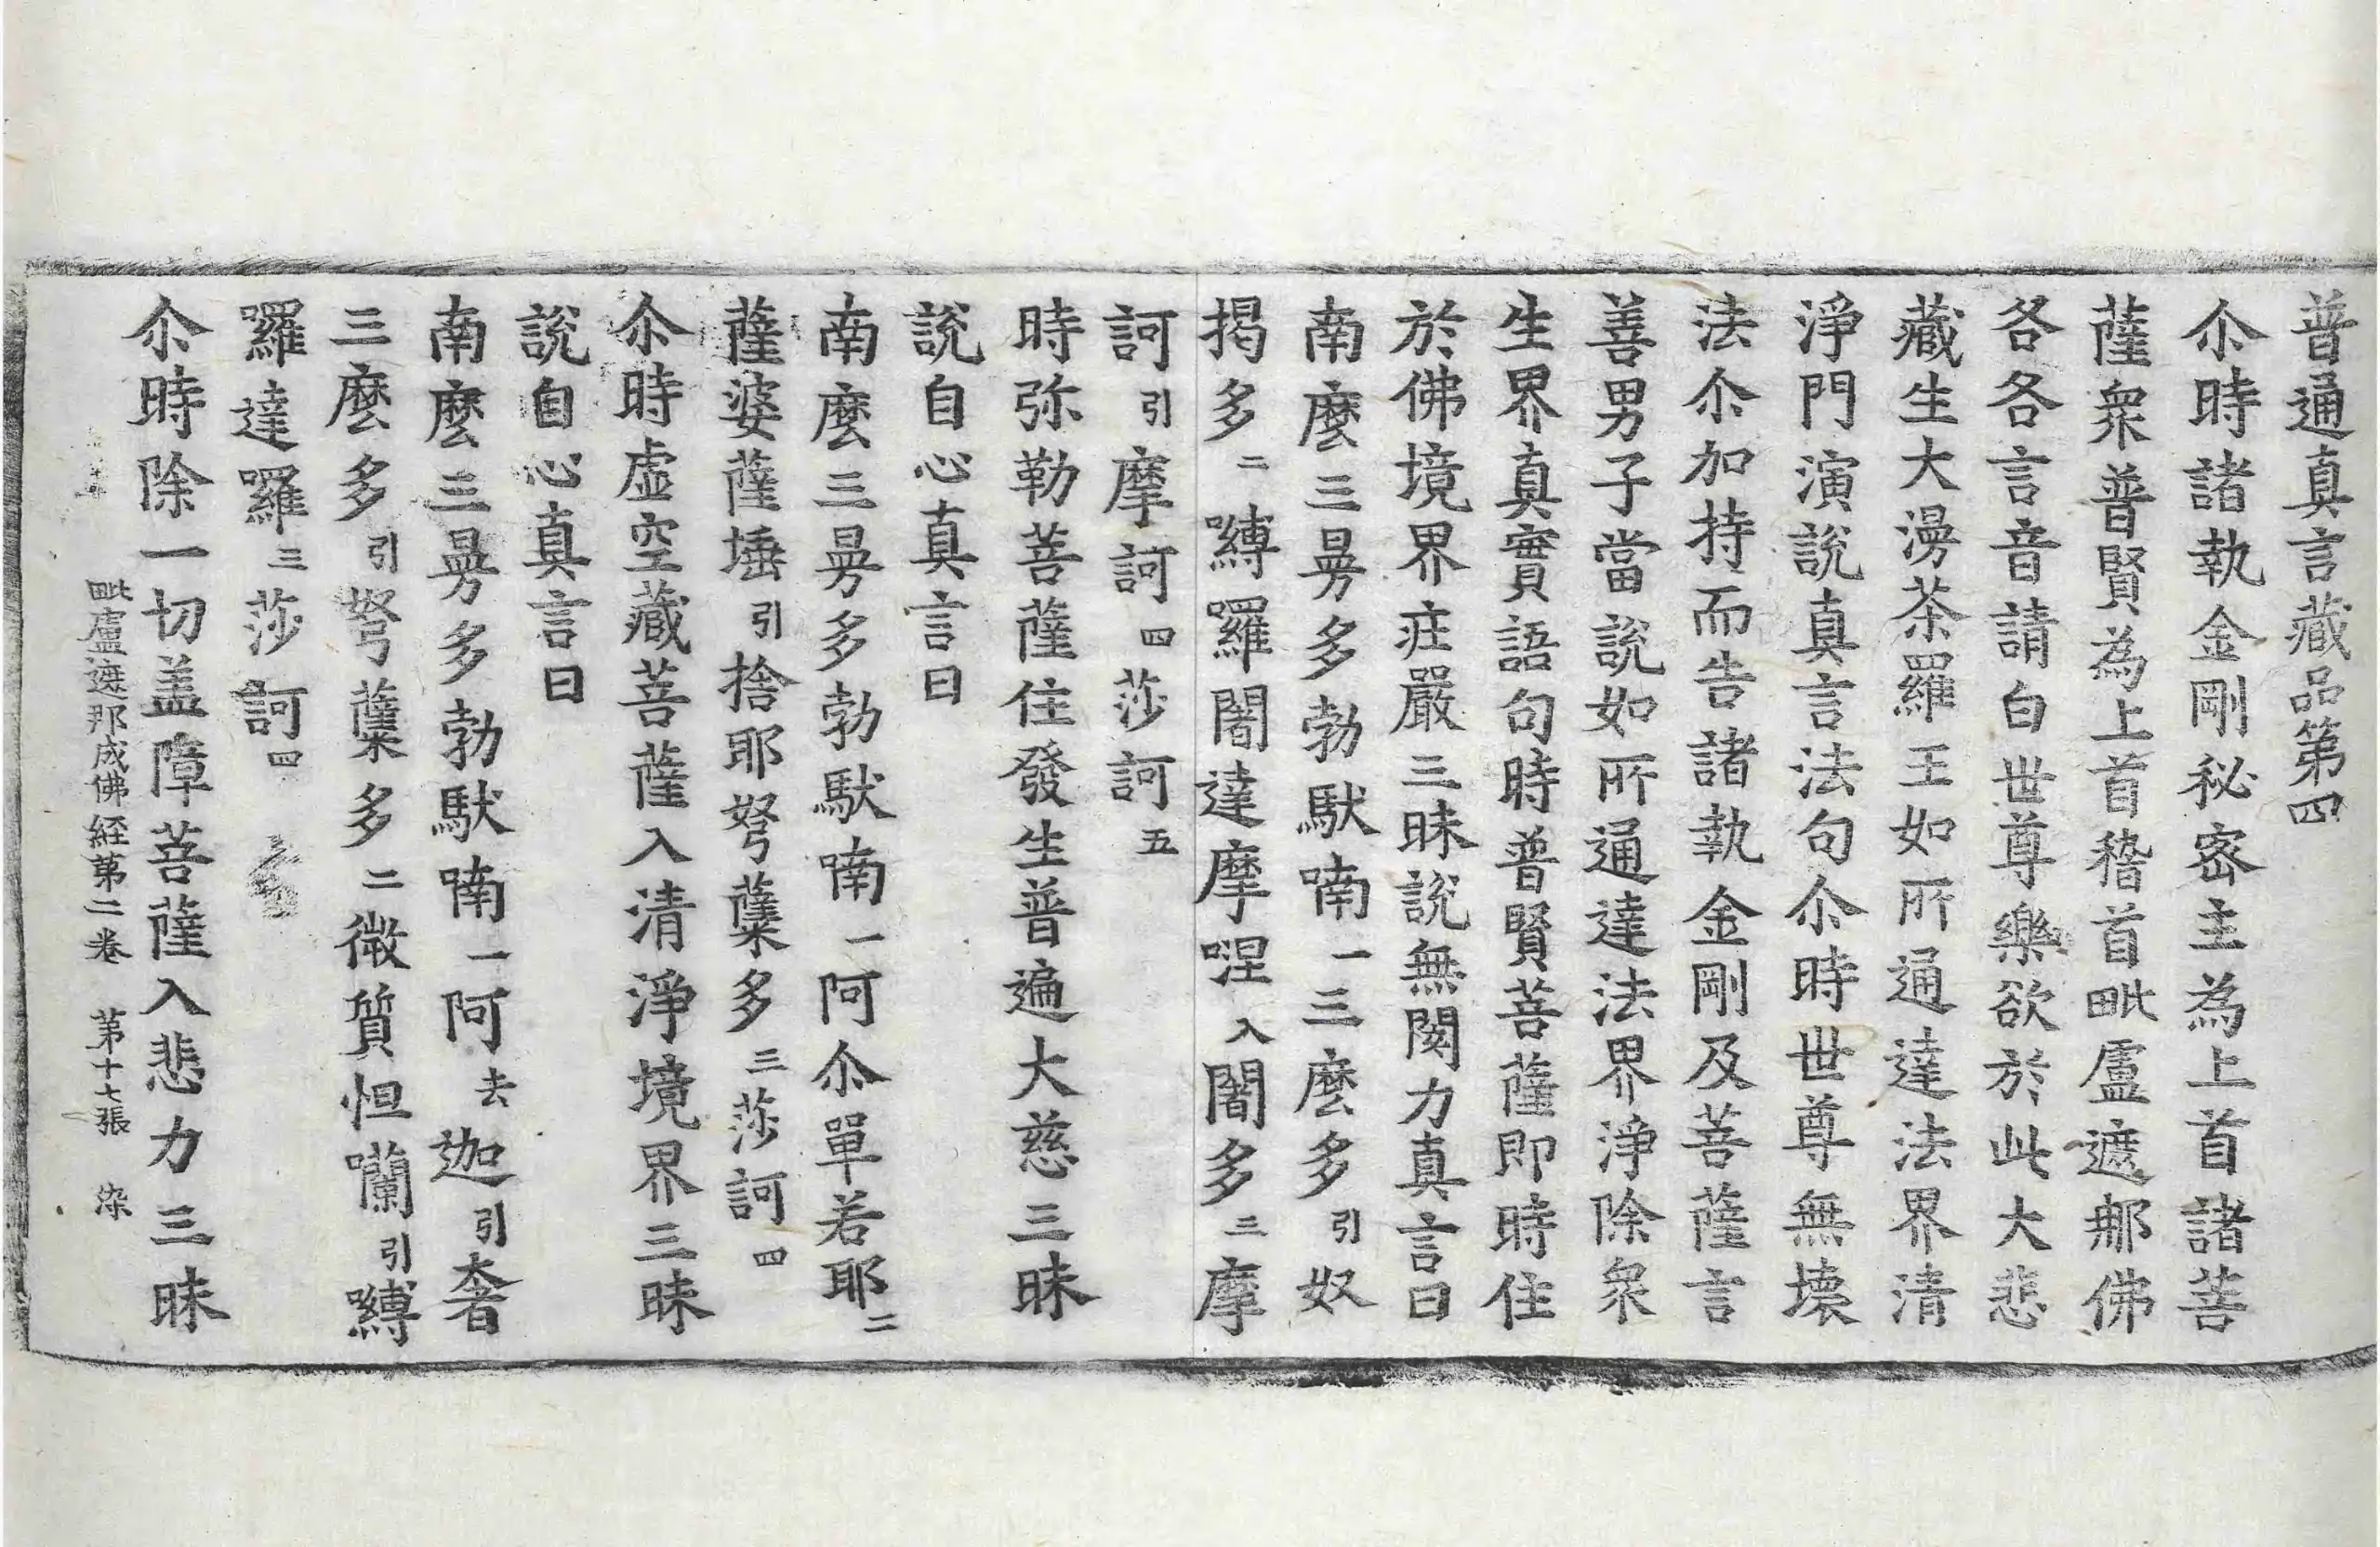 普通真言藏品第四
尒時諸執金剛秘密主為上首諸菩
薩衆普賢為上首稽首毗盧遮郍佛
各各言音請白世尊樂欲於此大悲
藏生大漫荼羅王如所通達法界清
淨門演說真言法句尒時世尊無壞
法尒加持而告諸執金剛及菩薩言
善男子當說如所通達法界淨除衆
生界真實語句時普賢菩薩即時住
於佛境界莊嚴三昧說無閡力真言曰
南麽三曼多勃馱喃一三麽多引奴
揭多二嚩囉闍達摩涅入闍多三摩
訶引摩訶四莎訶五
時弥勒菩薩住發生普遍大慈三昧
說自心真言曰
南麽三曼多勃馱喃一阿尒單若耶二
薩婆薩埵引捨耶弩蘖多三莎訶四
尒時虛空藏菩薩入清淨境界三昧
說自心真言曰
南麽三曼多勃馱喃一阿去迦引奢
三麽多引弩蘖多二微質怛囒引嚩
囉達囉三莎訶四
尒時除一切盖障菩薩入悲力三昧
毗盧遮那成佛経第二卷 第十七張 染